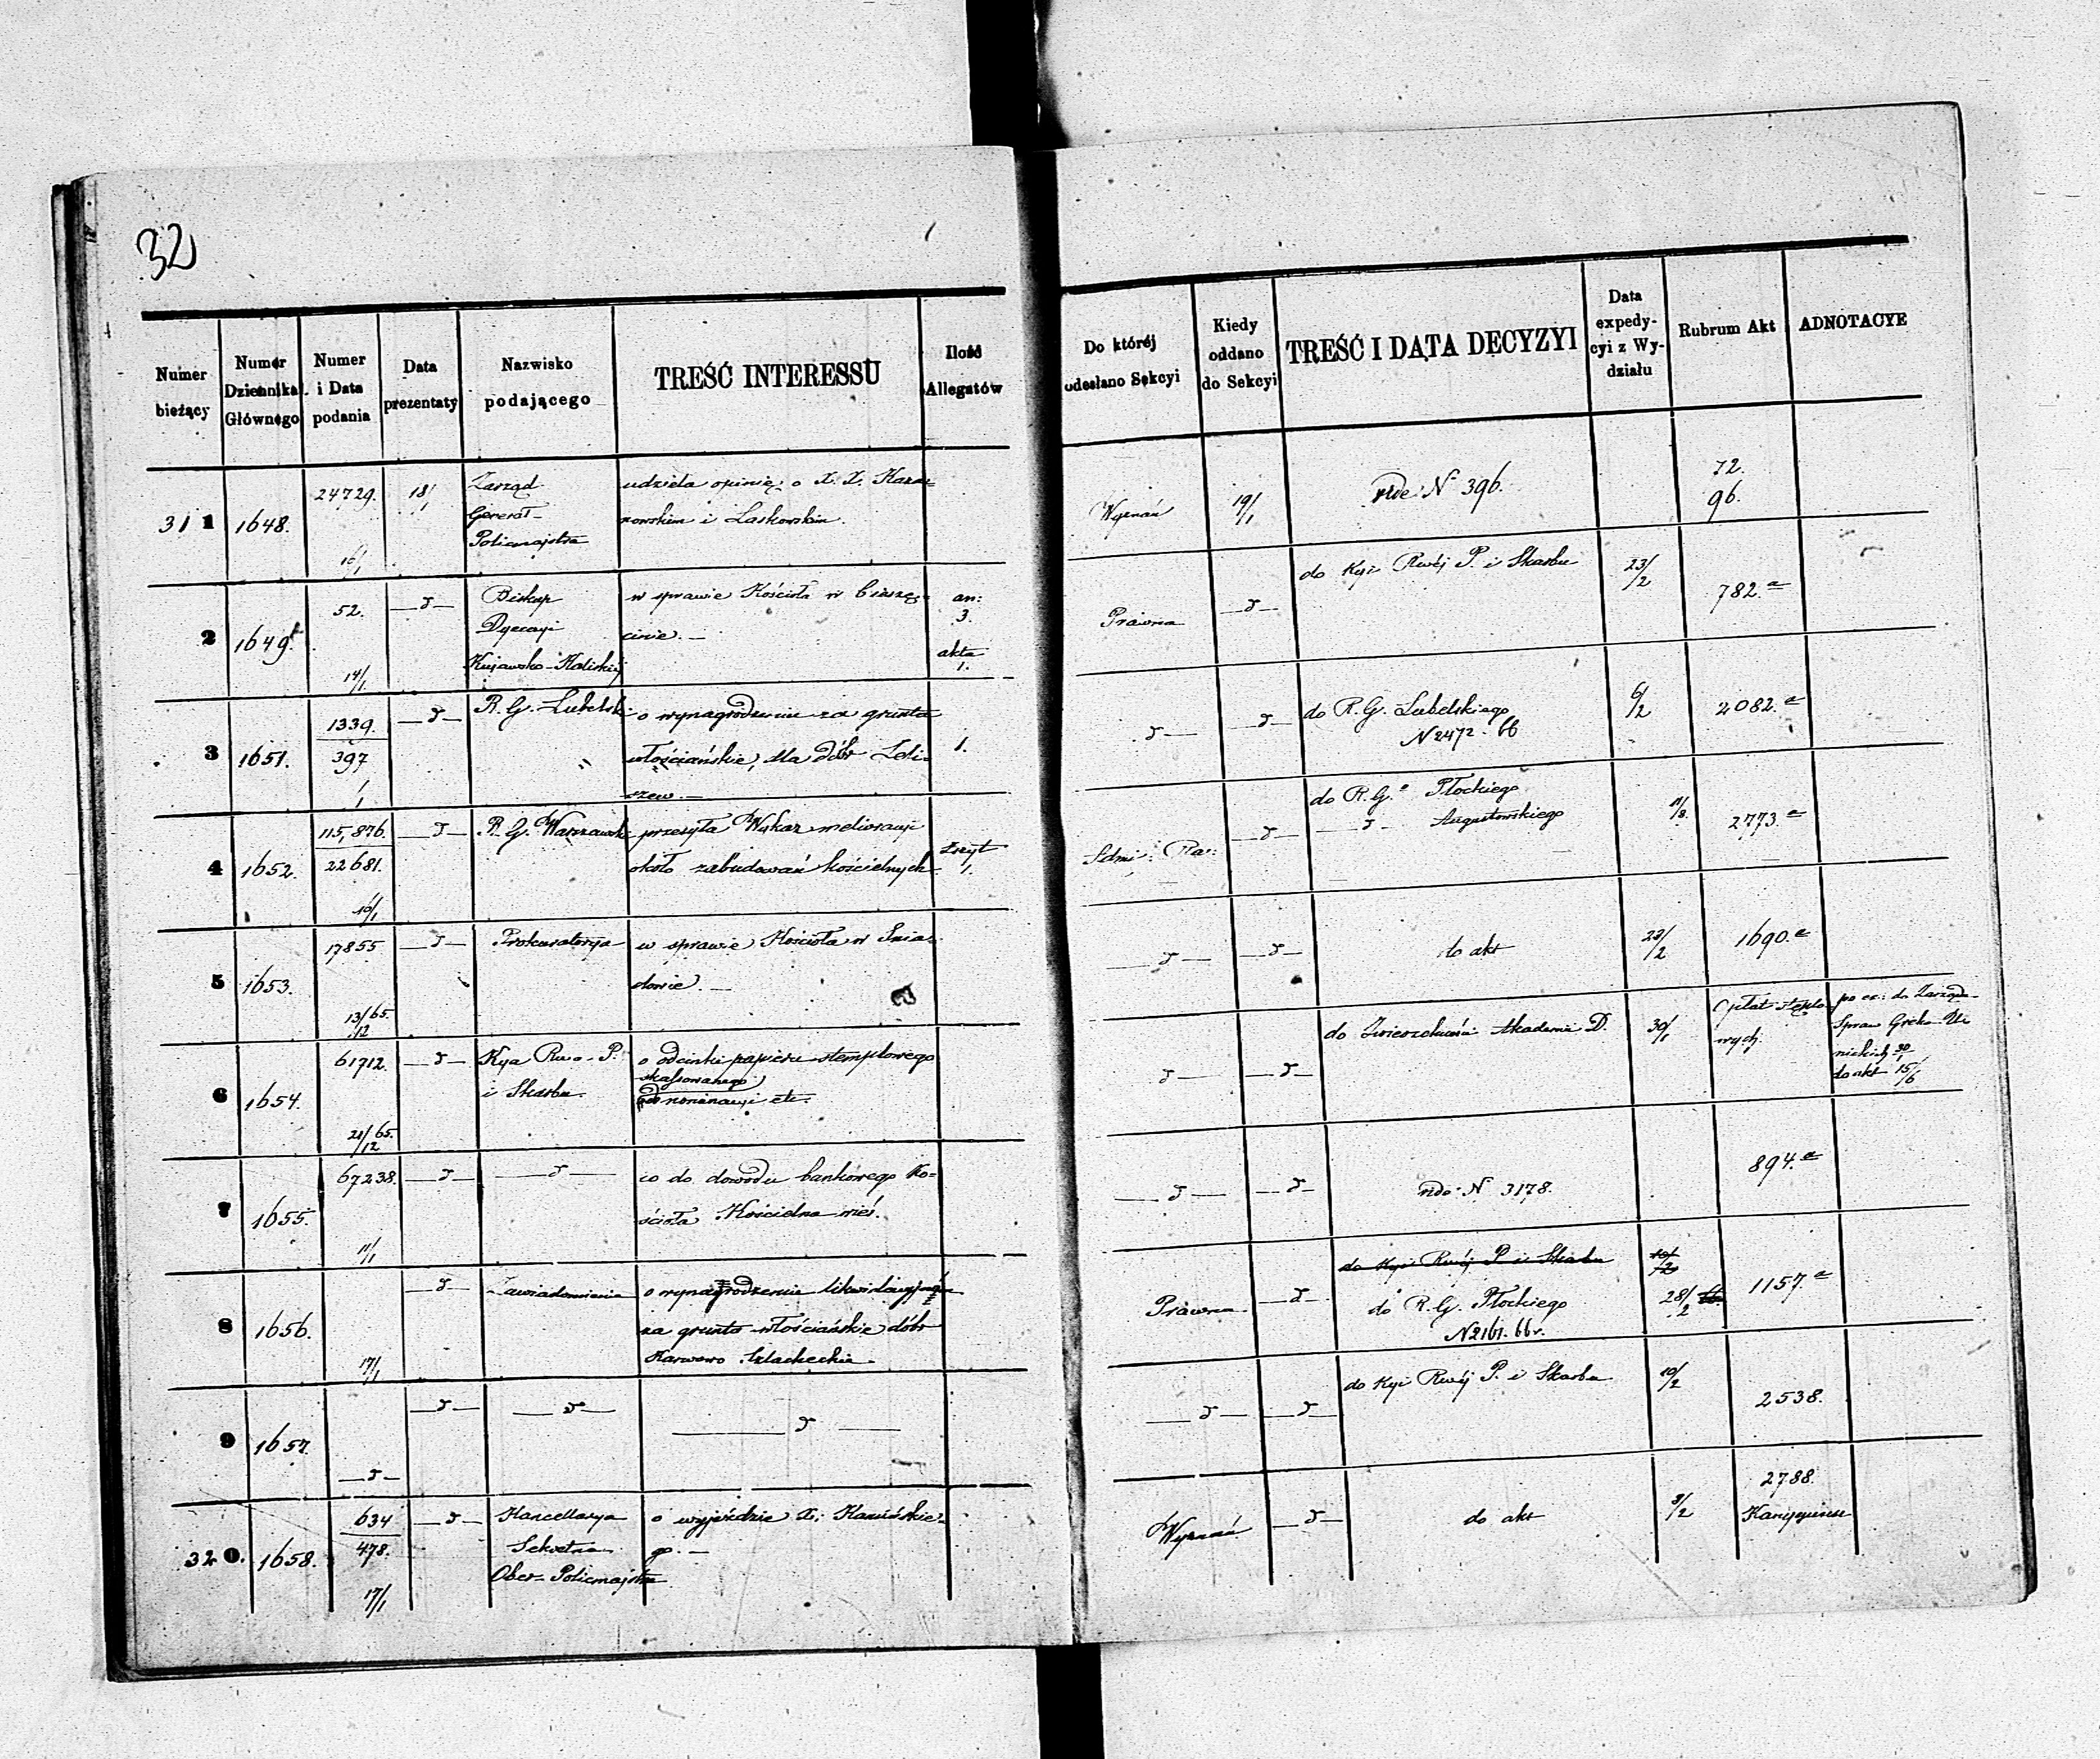 32
Numer bieżący
Numer Dziennika Głównego
Numer i Data podania
Data prezentaty
Nazwisko podającego
TREŚĆ INTERESSU
Ilość Allegatów
Do której odesłano Sekcyi
Kiedy oddano do Sekcyi
TREŚĆ I DATA DECYZYI
Data expedycyi z Wydziału
Rubrum Akt
ADNOTACYE
311 1648. 24729. 16/1 18/1
Zarząd
Generał-
Policmajstra
udziela opinię o X. X. Kara=
nowskim i Laskowskim.
Wyznań 19/1 vide N 396. 72.
96.
2 1649. 52. 14/1 —d—
Biskup
Dyecezyi
Kujawsko-Kaliskiej
w sprawie Kościoła w
cinie. —
an:
3.
akta
1.
Prawna —d— do Kyi Rwéj P. i Skarbu 23/2 782.a
3 1651. 1339.
397
1/1 —d—
R. G. Lubelski
o wynagrodzenie za grunta
włościańskie, dla dóbr
1.
—d— —d— do R. G. Lubelskiego
N 2472. 66
6/2 2082.a
4 1652. 115,876.
22681.
16/1 —d—
R. G. Warszawski
przesyła Wykaz melioracyi
około zabudowań kościelnych.
Zeszyt
1.
—d— do R. G.o Płockiego
—d— Augustowskiego
2773.a
5 1653. 17855 13/12 65. —d—
Prokuratorya
w sprawie Kościoła w Snia=
dowie. —
—d— —d— do akt 23/2 1690.a
6 1654. 61712. 21/12 65. —d—
Kya Rwa P.
i Skarbu.
o odcinki papieru stemplowego
skassowanego
nominacyi etc.
—d— —d— do Zwierzchności Akademii D. 30/1
Opłat Stęplo=
wych.
po ex: do Zarządu
Spraw Greko-Un
nickich 30/1
do akt 15/6
7 1655. 67238. 11/1 —d— —d—
co do dowodu bankowego Ko=
ścioła Kościelna wieś.
—d— —d— vide N 3178. 894.a
8 1656. 17/1 —d—
Zawiadomienie
o wynagrodzenie likwidacyjne
za grunta włościańskie dóbr
Karwowo Szlacheckie.
Prawna —d— do Kyi Rwéj P. i Skarbu
do R. G. Płockiego
N 2161. 66 r.
28/2 1157.a
9 1657. —d— —d— —d— —d—
—d— —d— do Kyi Rwéj P. i Skarbu 10/2 2538.
320. 1658. 634
478.
17/1 —d—
Kancellarya
Sekretna
Ober-Policmajstra
o wyjeździe X. Kamińskie=
go. —
Wyznań —d— do akt 3/2 2788.